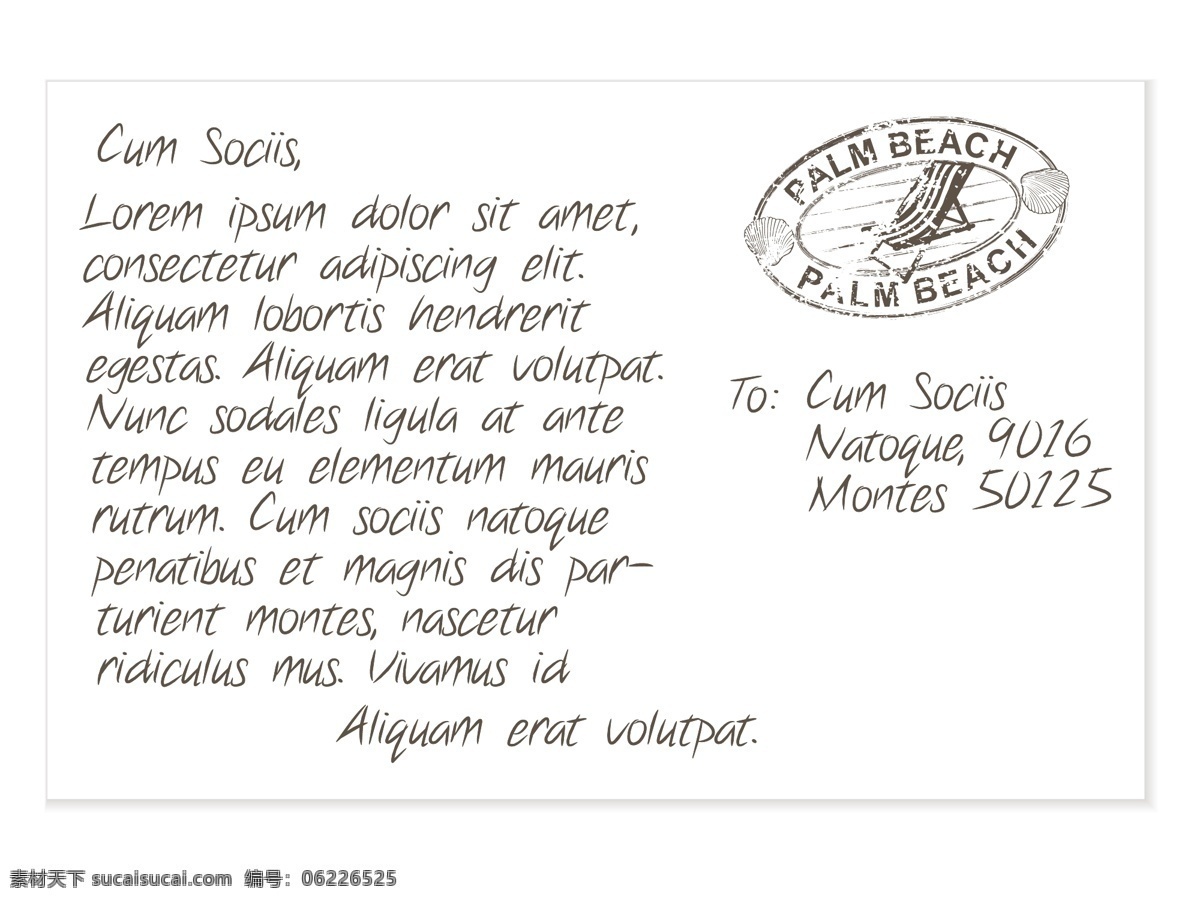 Cum Sociis,
Lorem ipsum dolor sit amet,
consectetur adipiscing elit.
Aliquam lobortis hendrerit
egestas. Aliquam erat volutpat.
Nunc sodales ligula at ante
tempus eu elementum mauris
rutrum. Cum sociis natoque
penatibus et magnis dis par-
turient montes, nascetur
ridiculus mus. Vivamus id
Aliquam erat volutpat.
PALM BEACH
PALM BEACH
To: Cum Sociis
Natoque, 9016
Montes 50125
素材天下 sucaisucai.com 编号：06226525